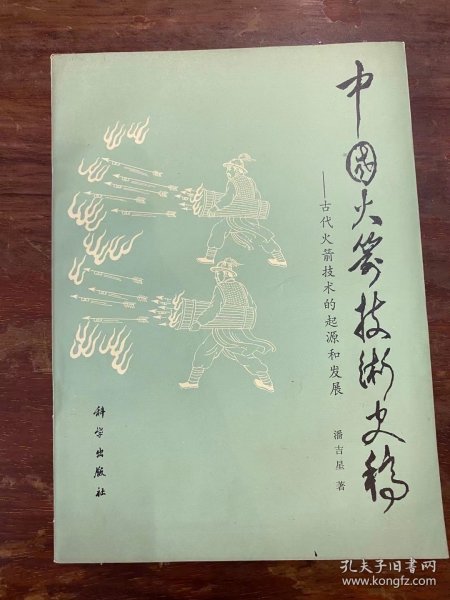 中國火箭技術史稿
——古代火箭技术的起源和发展
潘吉星 著
科学出版社
孔夫子旧书网
www.kongfz.com